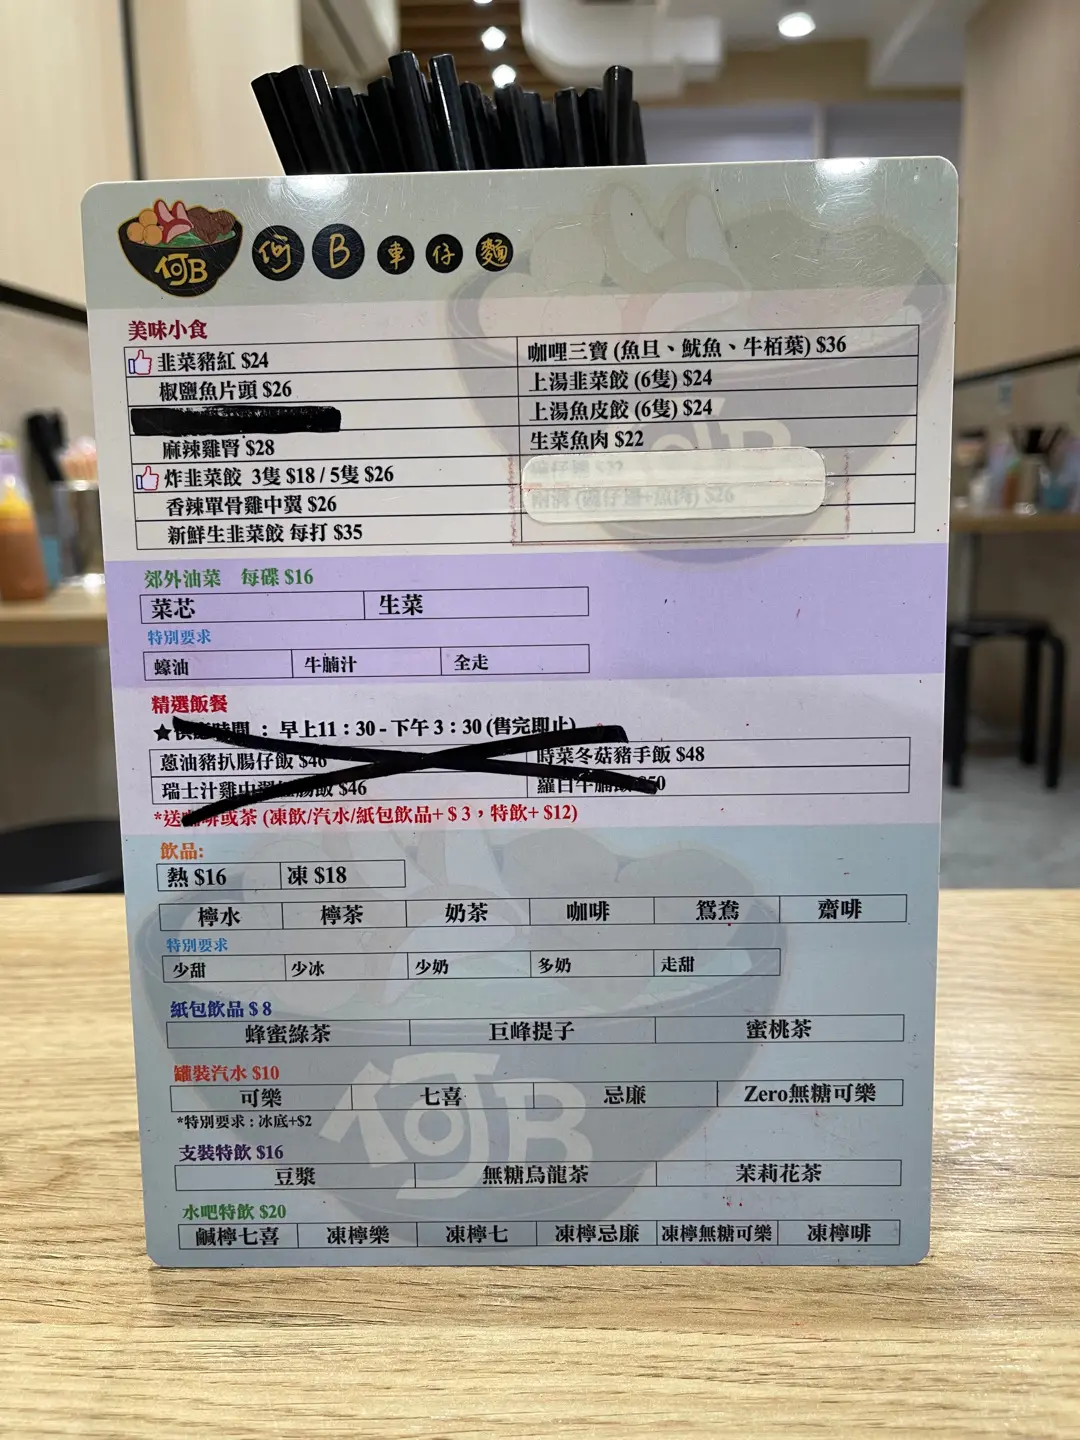 何B
何B車仔麵
美味小食
韭菜豬紅 $24
椒鹽魚片頭 $26
麻辣雞腎 $28
炸韭菜餃 3隻 $18 / 5隻 $26
香辣單骨雞中翼 $26
新鮮生韭菜餃 每打 $35
咖哩三寶 (魚旦、魷魚、牛栢葉) $36
上湯韭菜餃 (6隻) $24
上湯魚皮餃 (6隻) $24
生菜魚肉 $22
郊外油菜 每碟 $16
菜芯 生菜
特別要求
蠔油 牛腩汁 全走
精選飯餐
★供應時間 : 早上11 : 30 - 下午 3 : 30 (售完即止)
蔥油豬扒腸仔飯 $46 時菜冬菇豬手飯 $48
瑞士汁雞中翼紅腸飯 $46 羅白牛腩飯 $50
*送咖啡或茶 (凍飲/汽水/紙包飲品+ $ 3，特飲+ $12)
飲品:
熱 $16 凍 $18
檸水 檸茶 奶茶 咖啡 鴛鴦 齋啡
特別要求
少甜 少冰 少奶 多奶 走甜
紙包飲品 $ 8
蜂蜜綠茶 巨峰提子 蜜桃茶
罐裝汽水 $10
可樂 七喜 忌廉 Zero無糖可樂
*特別要求 : 冰底+$2
支裝特飲 $16
豆漿 無糖烏龍茶 茉莉花茶
水吧特飲 $20
鹹檸七喜 凍檸樂 凍檸七 凍檸忌廉 凍檸無糖可樂 凍檸啡